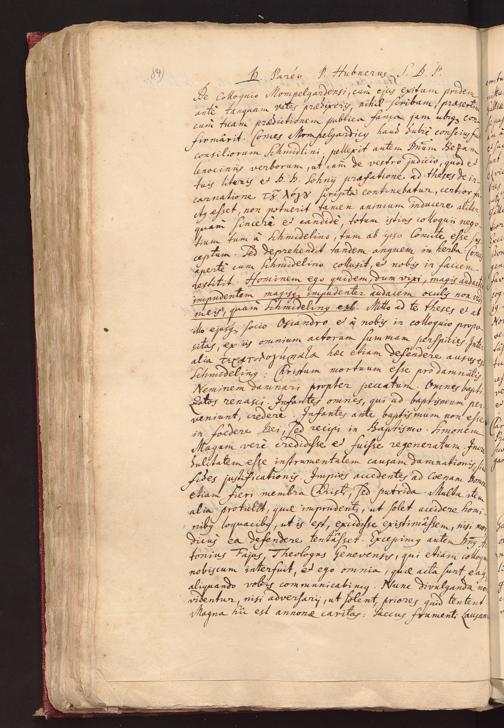 84)
D. Paréo P. Hubnerus S. D. P.
De Colloquio Mompelgardensi, cum ejus exitum pridem
antè tanquam vates praedixeris, nihil scribam, praesertim
cum tuam praedictionem publica fama jam ubiq con
firmârit. Comes Mompelgardicus haud dubiè conscius
consiliorum Schmidlini, pellexit autem Dnum Bezam
lenociniis verborum, ut cum de vestro judicio, quod et
tuis literis et D. D. Sohnij praefatione ad theses de in
carnatione τοῦ λόγου scriptâ continebatur, certior fa
ctus esset, non potuerit tamen animum inducere aliter
quam sincerè et candidè, totum istius colloquij nego
tium tum à Schmidelino, tum ab ipso Comite esse sus
ceptum. Sed deprehendit tandem anguem in herba. Comes
apertè cum Schmidelino collusit, et nobis in faciem
restitit. Hominem ego quidem, dum vixi, magis audacter
impudentem magisq impudenter audacem oculis non vidi
meis, quam Schmideling est. Mitto ad te theses et ab
illo ejusq socio Osiandro et à nobis in colloquio propo
sitas, ex iis omnium actorum summam perspicies. Inter
alia haec etiam defendere ausus est
Schmideling: Christum mortuum esse pro damnatis
Neminem damnari propter peccatum. Omnes bapti
zatos renasci. Infantes omnes, qui ad baptismum per
veniunt, credere. Infantes ante baptismum non esse
in foedere Dei, sed recipi in Baptismo. Simonem
Magum verè credidisse et fuisse regeneratum. Incre
dulitatem esse instrumentalem causam damnationis, sicut
fides justificationis. Impios accedentes ad coenam Domini
etiam fieri membra Christi, sed putrida. Multa item
alia protulit, quae imprudenti, ut solet accidere homi
nibus loquacibus, ut is est, excidisse existimâssem, nisi mor
dicus ea defendere tentâsset. Excepimus autem An
tonius Fajus, Theologus Genevensis, qui etiam colloquio
nobiscum interfuit, et ego omnia, quae acta sunt eaq
aliquando vobis communicabimus. Nunc divulganda non
videntur, nisi adversarij, ut solent, priores quid tentent.
Magna hîc est annonae caritas: saccus frumenti Lausan